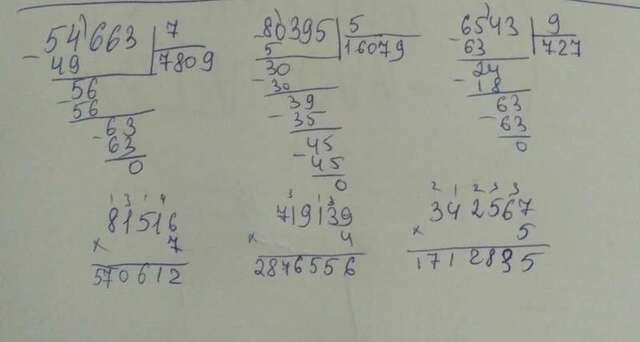 54663 7
- 49 7809
- 56
56
- 63
63
0
80395 5
- 5 16079
- 30
30
- 39
35
- 45
45
0
6543 9
- 63 727
- 24
18
- 63
63
0
1 3 1 4
81516
× 7
570612
3 3
719139
× 4
2876556
2 1 2 3 3
342567
× 5
1712835